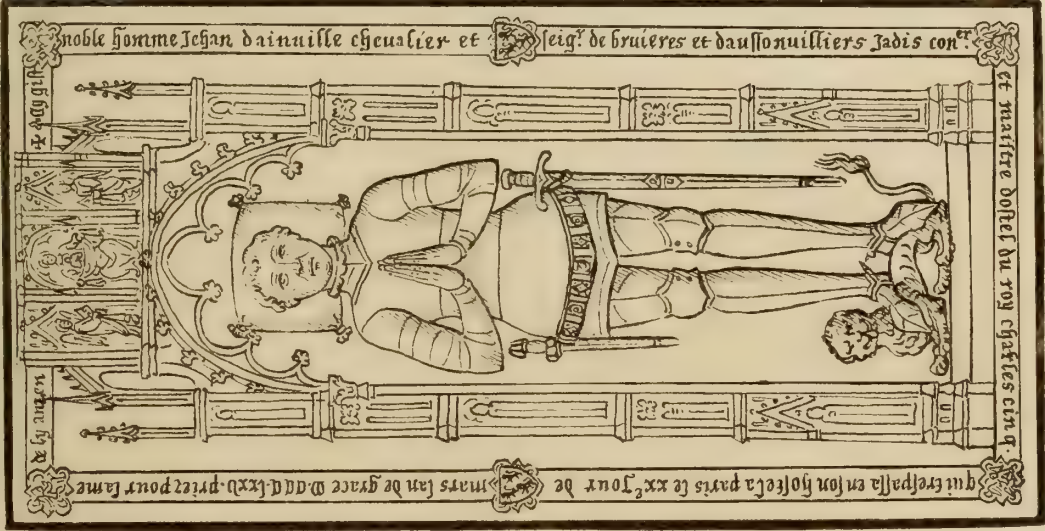 ✠ Cy gist
noble homme Jehan dainuille chevalier et seigr. de bruieres et daussonuilliers Jadis coner.
et maistre dostel du roy charles cinq.
qui trespassa en son hostel a paris le xxe Jour de mars lan de grace M.CCC.lxxv. priez pour lame
de ly amen